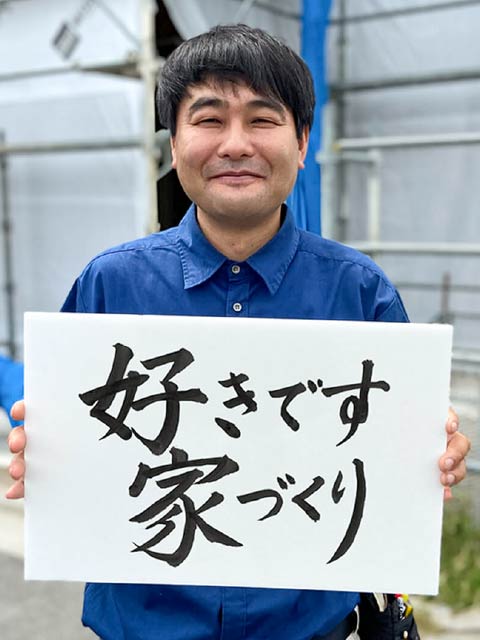 好きです
家づくり